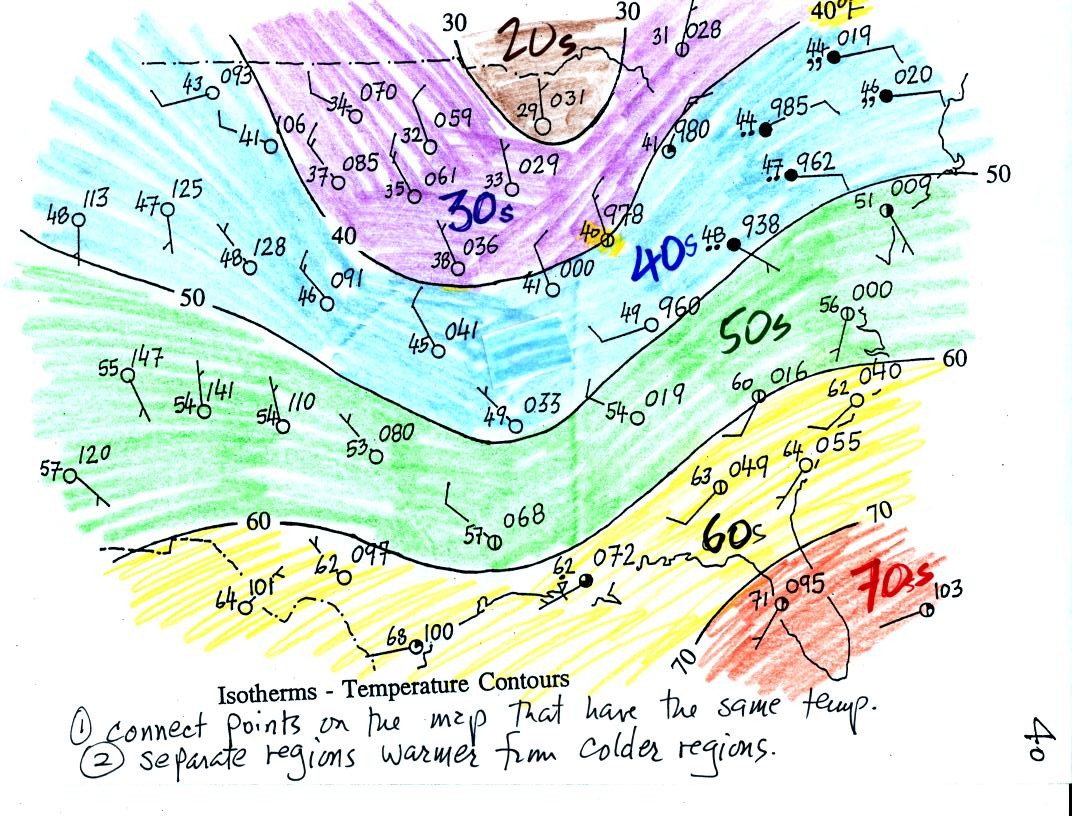 30
20s
30
40°F
31 028
44 019
,,
43 093
34 070
29 031
46 020
,,
41 106
32 059
41 980
44 985
37 085
35 061
33 029
47 962
50
48 113
47 125
30s
978
40
51 009
40
48 128
38 036
40s
48 938
50
46 091
41 000
45 041
49 960
50s
56 000
60
55 147
54 141
54 110
49 033
54 019
60 016
62 040
57 120
53 080
63 049
64 055
60
57 068
60s
70
62 097
62 072
64 101
71 095
70s
103
68 100
70
Isotherms - Temperature Contours
① connect points on the map that have the same temp.
② separate regions warmer from colder regions.
40